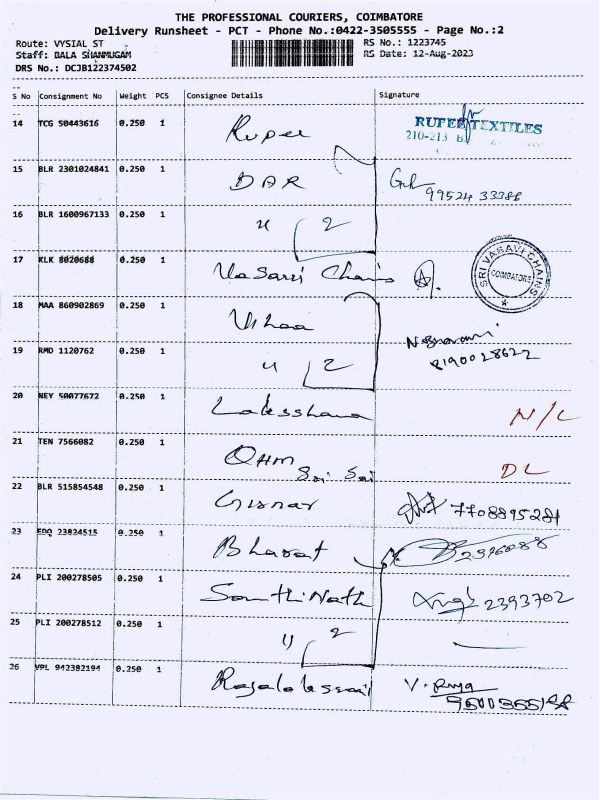 THE PROFESSIONAL COURIERS, COIMBATORE
Delivery Runsheet - PCT - Phone No.:0422-3505555 - Page No.:2
Route: VYSIAL ST RS No.: 1223745
Staff: BALA SHANMUGAM RS Date: 12-Aug-2023
DRS No.: DCJB122374502
S No Consignment No Weight PCS Consignee Details Signature
14 TCG 50443616 0.250 1 Rupee RUPEE TEXTILES
210-213
15 BLR 2301024841 0.250 1 DAR
99524 33388
16 BLR 1600967133 0.250 1 " 2
17 KLK 8020688 0.250 1 Vasavi Chains SRI VASAVI CHAINS COIMBATORE
18 MAA 860902869 0.250 1 Vihaa
8190028622
19 RMD 1120762 0.250 1 " 2
20 NEY 50077672 0.250 1 Laksshana N/L
21 TEN 7566082 0.250 1 OHM Sri Sai DL
22 BLR 515854548 0.250 1 7708895281
23 EDQ 23824515 0.250 1 Bharat
24 PLI 200278505 0.250 1 Santhi Nath 2393702
25 PLI 200278512 0.250 1 " 2
26 VPL 942382194 0.250 1 V. Priya